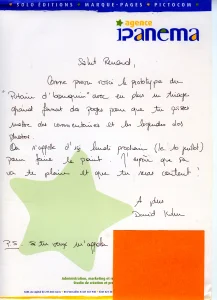 SOLO EDITIONS • MARQUE-PAGES • PICTOCOM
agence
IPANEMA
Salut Renaud,
Comme prévu voici le prototype du
"Putain d'bouquin" avec en plus un tirage
grand format des pages pour que tu puisses
mettre des commentaires et les légendes des
photos.
On s'appelle d'ici lundi prochain (le 10 juillet)
pour faire le point. J'espère que ça
va te plaire et que tu seras content !
A plus
David
P.S: si tu veux m'appeler